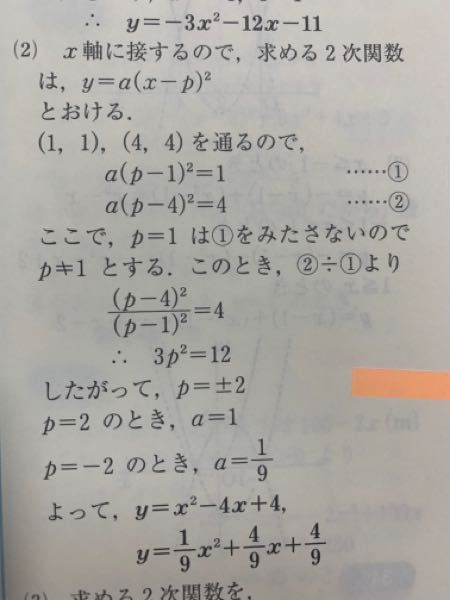 ∴ y=-3x²-12x-11
(2) x軸に接するので，求める2次関数
は，y=a(x-p)²
とおける．
(1, 1), (4, 4) を通るので，
a(p-1)²=1 ……①
a(p-4)²=4 ……②
ここで，p=1 は①をみたさないので
p≠1 とする．このとき，②÷①より
(p-4)²/(p-1)²=4
∴ 3p²=12
したがって，p=±2
p=2 のとき，a=1
p=-2 のとき，a=1/9
よって，y=x²-4x+4,
y=1/9x²+4/9x+4/9
求める2次関数を，